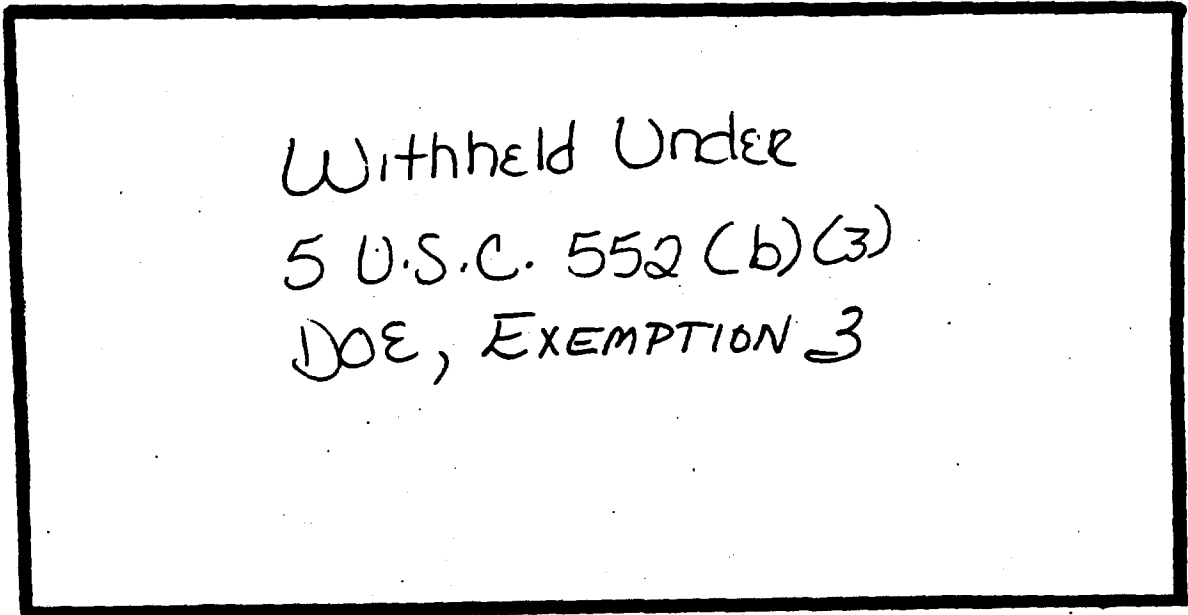 Withheld Under
5 U.S.C. 552 (b)(3)
DOE, EXEMPTION 3